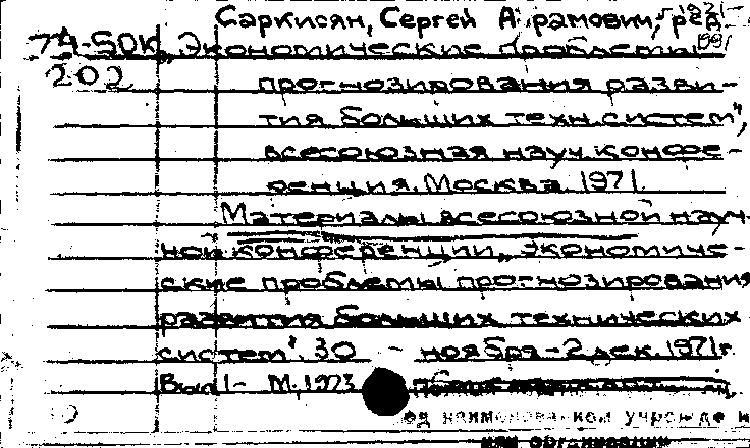 Саркисян, Сергей А рамович, ред.
74-50К „Экономические проблемы
202 прогнозирования разви-
тия больших техн. систем",
всесоюзная науч. конфе-
ренция. Москва. 1971.
Материалы всесоюзной науч-
ной конференции „Экономиче-
ские проблемы прогнозирования
развития больших технических
систем". 30 - ноября-2 дек. 1971г
Вып 1- М., 1973
од наименованием учрежде
или организации